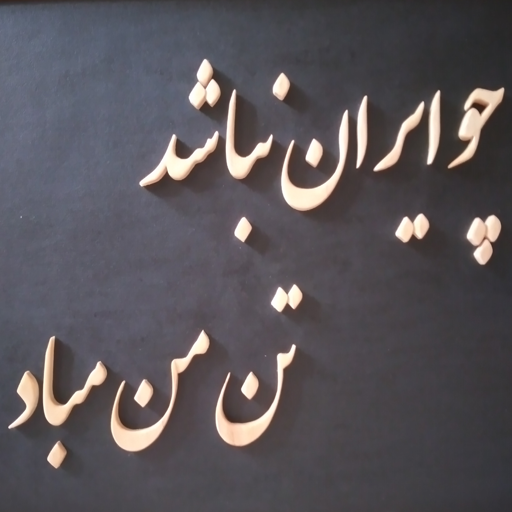 چو ایران نباشد
تن من مباد